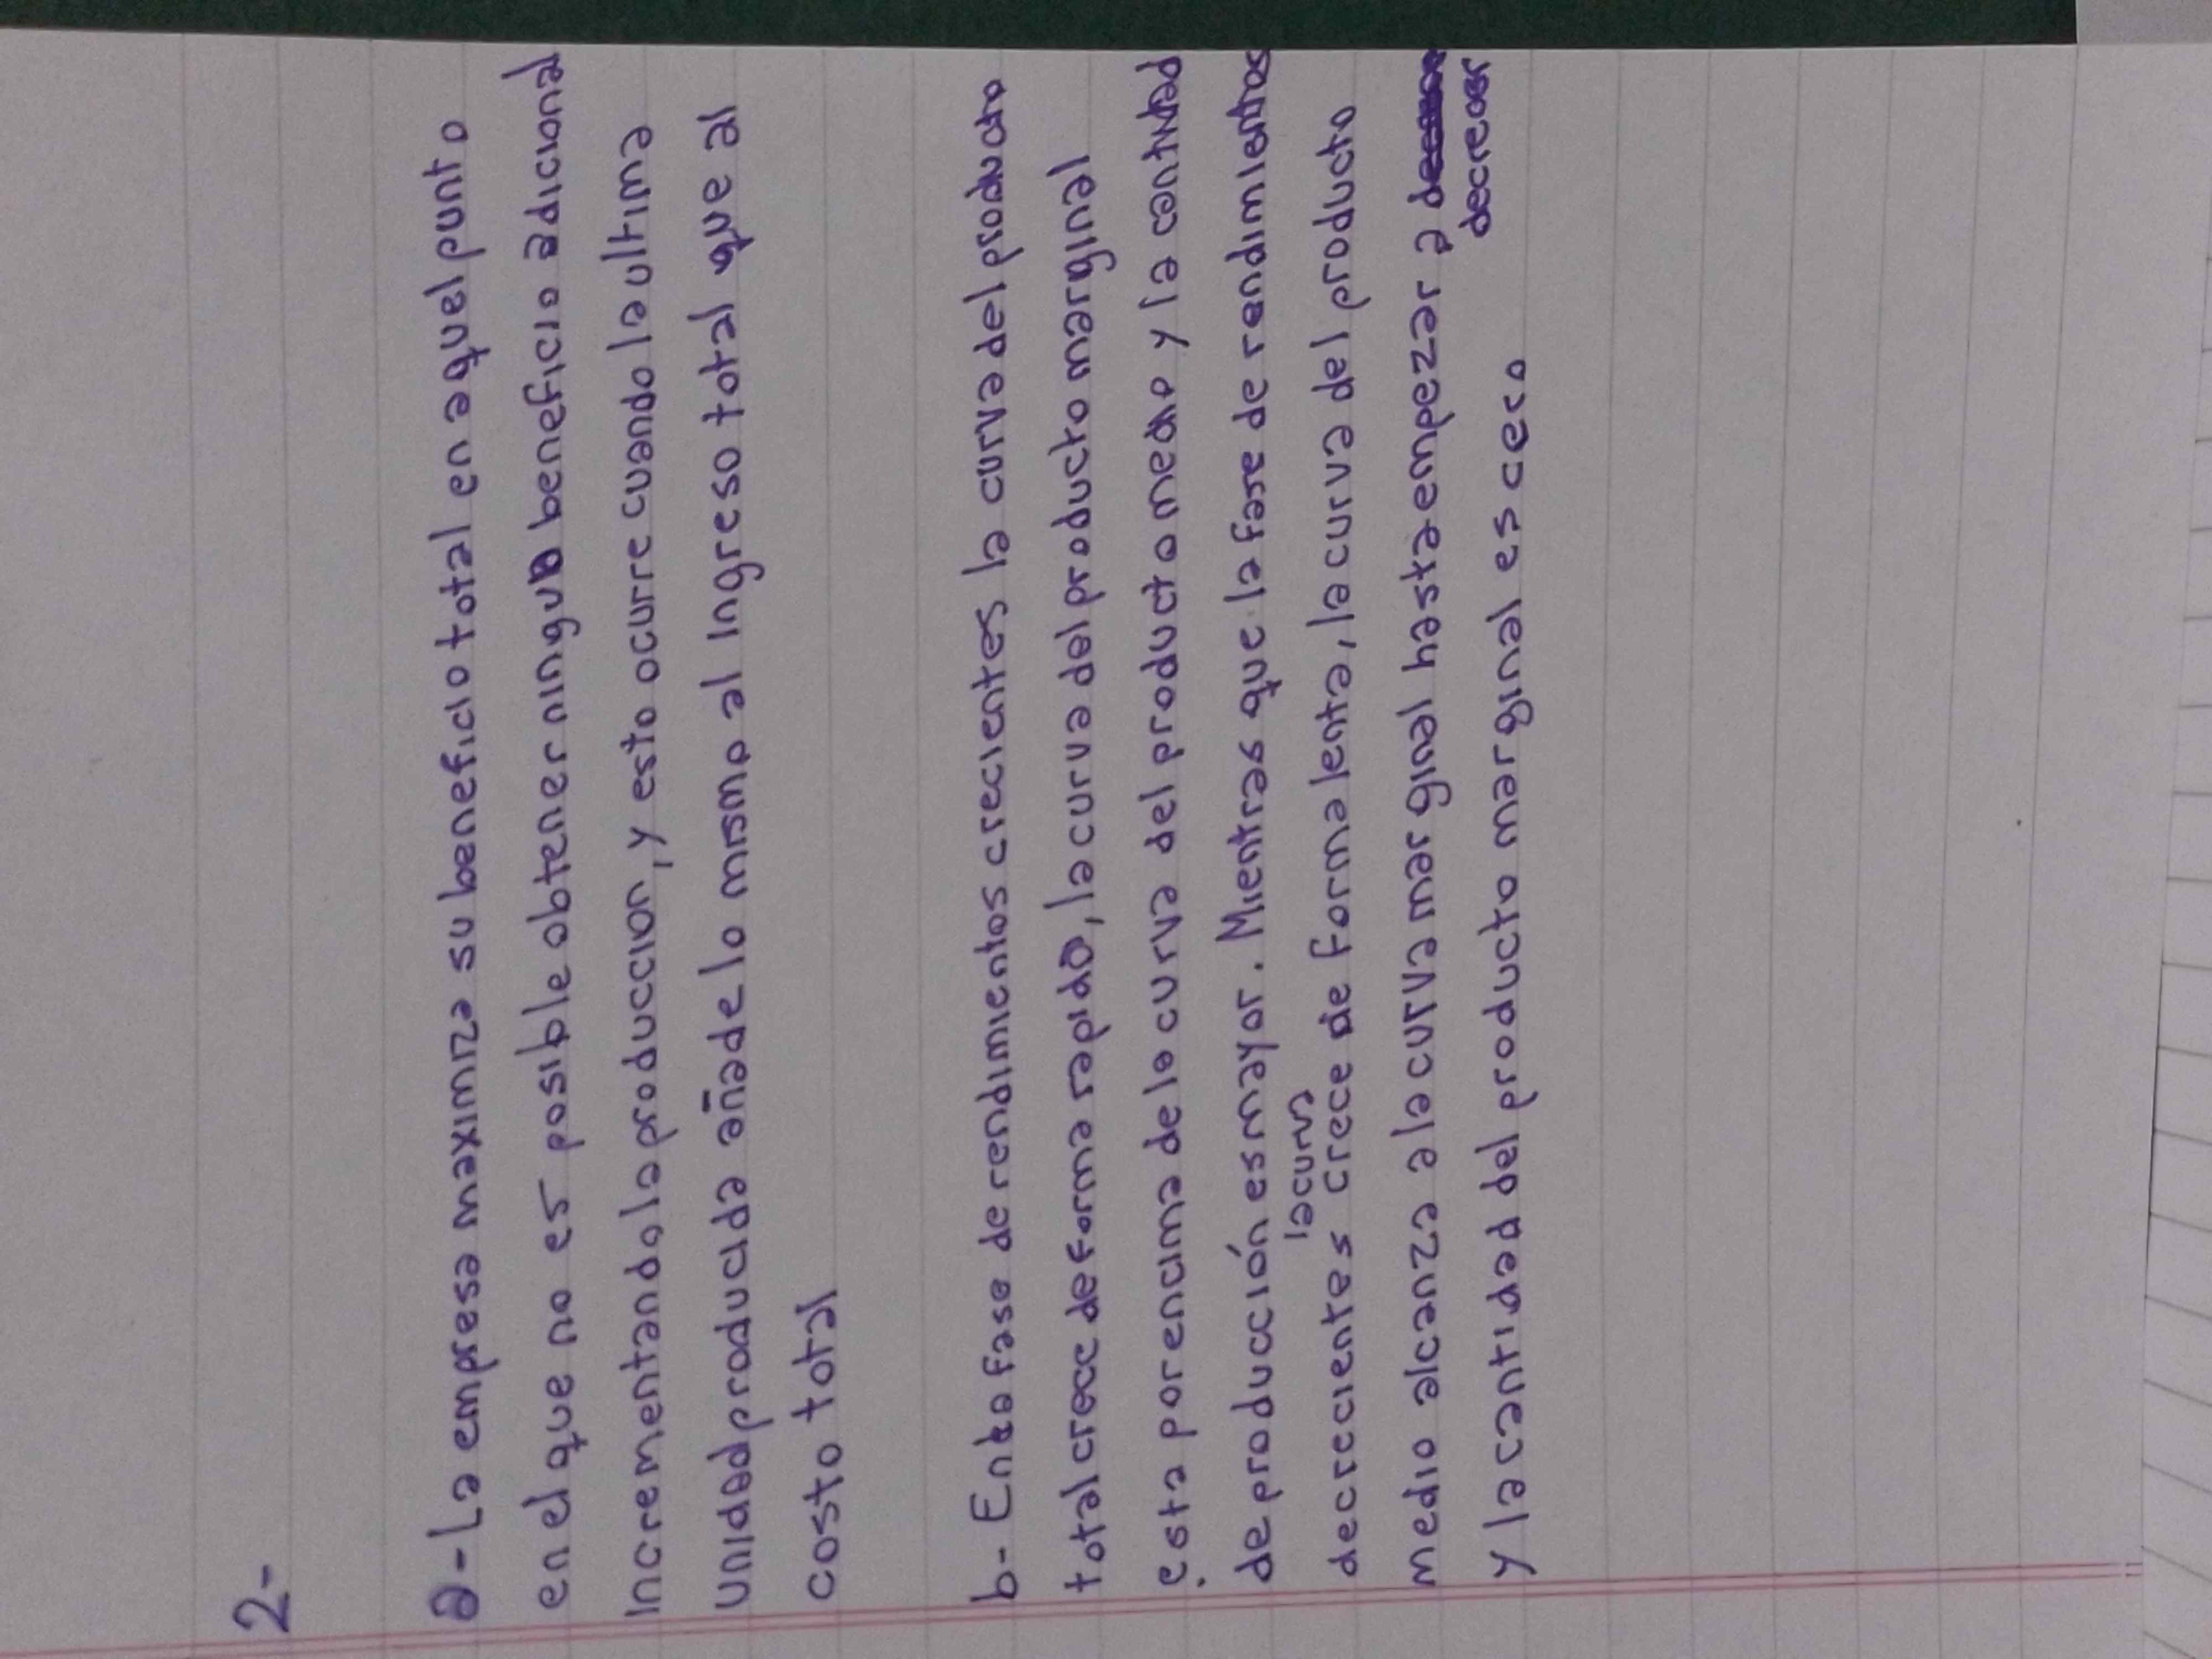 2-
a- La empresa maximiza su beneficio total en aquel punto
en el que no es posible obtener ningun beneficio adicional
incrementando la produccion, y esto ocurre cuando la ultima
unidad producida añade lo mismo al ingreso total que al
costo total
b- En la fase de rendimientos crecientes la curva del producto
total crece de forma rapido, la curva del producto marginal
esta por encima de la curva del producto medio y la cantidad
de producción es mayor. Mientras que la fase de rendimientos
decrecientes la curva crece de forma lenta, la curva del producto
medio alcanza a la curva marginal hasta empezar a
decrecer
y la cantidad del producto marginal es cero